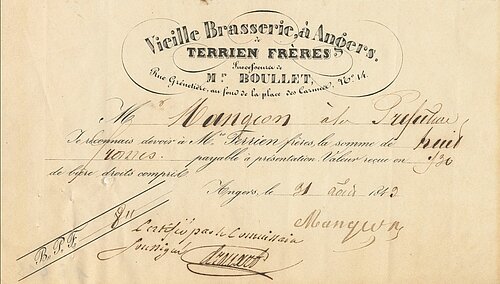 Vieille Brasserie, à Angers.
de
TERRIEN FRÈRES
Successeurs de
Mr BOULLET,
Rue Grénetière, au fond de la place des Carmes, No 14.
M Mangeon à la Préfecture
Je reconnais devoir à Mrs Terrien frères, la somme de huit
francs payable à présentation. Valeur reçue en
de bière droits compris.
Angers, le 21 août 1843
Mangeon
B. P. F. 8"
Certifié par le Commissaire
soussigné